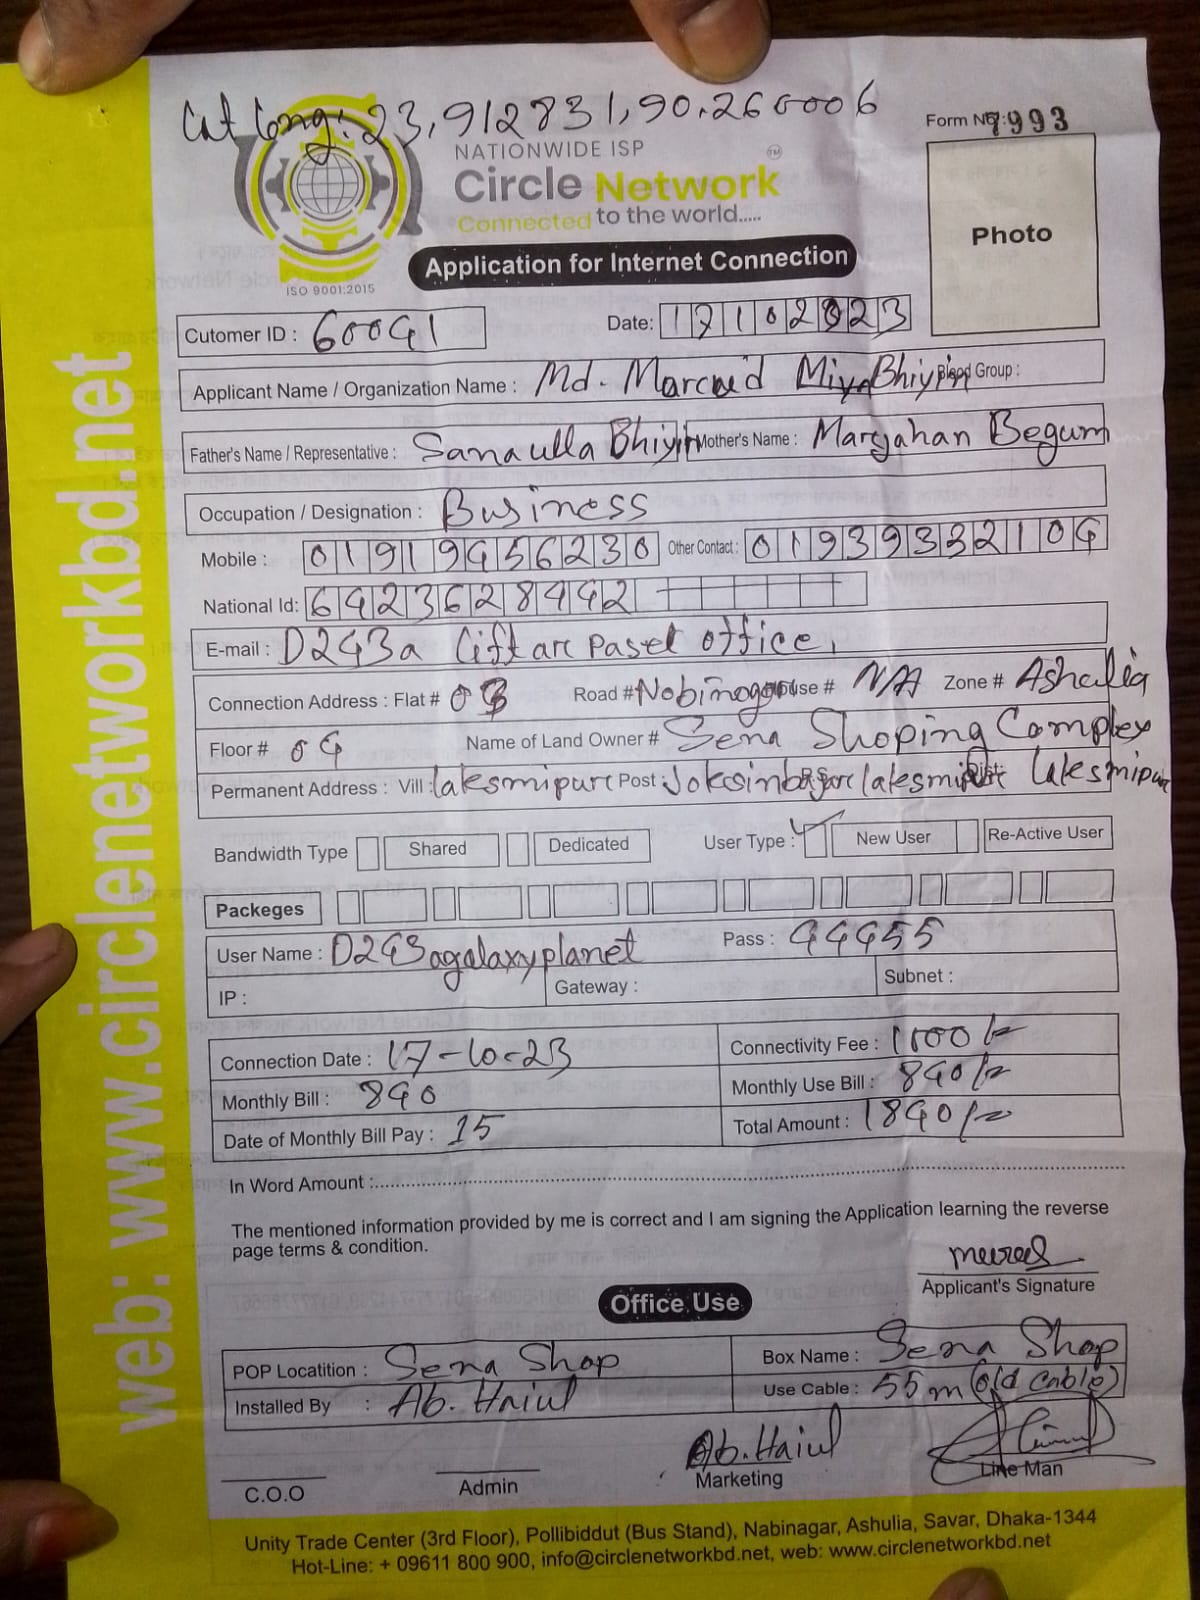 Lat Long: 23.912831, 90.260006
Form No: 7993
NATIONWIDE ISP
Circle Network TM
Connected to the world.....
ISO 9001:2015
Application for Internet Connection
Photo
Cutomer ID : 60041
Date: 17102023
Applicant Name / Organization Name : Md. Miya Bhiyin Blood Group :
Father's Name / Representative : Sanaulla Bhiyin Mother's Name : Marjahan Begum
Occupation / Designation : Business
Mobile : 01919456230 Other Contact : 01939332104
National Id: 6423628442
E-mail : D243a Liftarc Pasel office,
Connection Address : Flat # 03 Road # Nobinogor House # N/A Zone # Ashulia
Floor # 04 Name of Land Owner # Sena Shoping Complex
Permanent Address : Vill : laksmipurc Post : laksmipur Dist: laksmipur
Bandwidth Type Shared Dedicated User Type : ✓ New User Re-Active User
Packeges
User Name : D243agalaxyplanet Pass : 44455
IP : Gateway : Subnet :
Connection Date : 17-10-23 Connectivity Fee : 1000/-
Monthly Bill : 840 Monthly Use Bill : 840/-
Date of Monthly Bill Pay : 15 Total Amount : 1840/-
In Word Amount :
The mentioned information provided by me is correct and I am signing the Application learning the reverse
page terms & condition.
Applicant's Signature
Office Use
POP Locatition : Sena Shop Box Name : Sena Shop
Installed By : Ab. Haiul Use Cable : 55m (old cable)
Ab. Haiul
C.O.O Admin Marketing Line Man
Unity Trade Center (3rd Floor), Pollibiddut (Bus Stand), Nabinagar, Ashulia, Savar, Dhaka-1344
Hot-Line: + 09611 800 900, info@circlenetworkbd.net, web: www.circlenetworkbd.net
web: www.circlenetworkbd.net